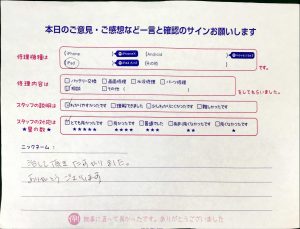 本日のご意見・ご感想など一言と確認のサインお願いします
修理機種は
iPhone
Android
iPad
その他
です。
修理内容は
バッテリー交換 画面修理 水没修理 パーツ修理
相談 その他(
をしてもらいました。
スタッフの説明は
わかりやすかったです 理解できました 少しわかりにくかったです 難しかったです
スタッフの対応は
★星の数★
とても良かったです 良かったです 普通でした あまり良くなかったです 良くなかったです
★★★★★ ★★★★ ★★★ ★★ ★
ニックネーム:
治して頂き たすかりました。
ありがとうございます
無事に直って良かったです。ありがとうございました